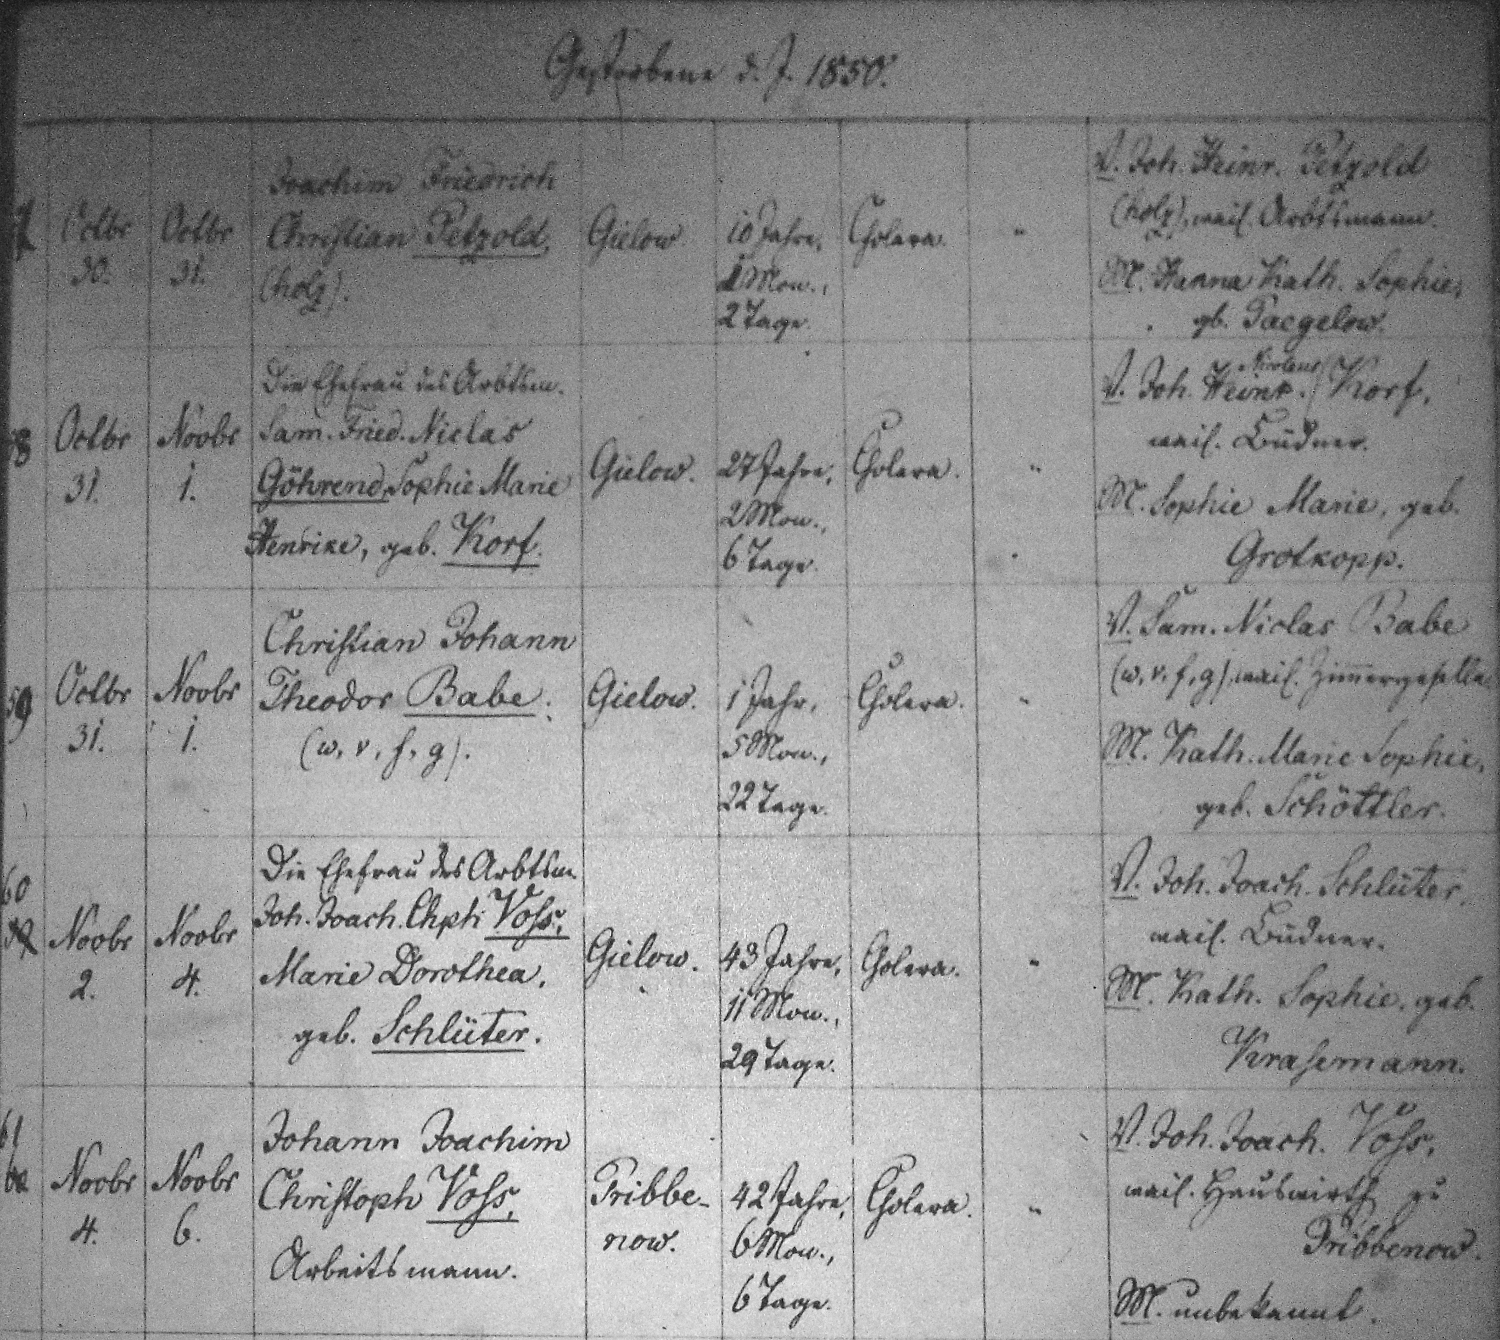 Gestorbene d. J. 1850.
57
Octbr
30.
Octbr
31.
Joachim Friedrich
Christian Petzold,
(holz).
Gielow.
10 Jahre,
1 Mon.,
2 Tage.
Cholera.
"
V. Joh. Heinr. Petzold
(holz), weil. Arbtsmann.
M. Hanna Kath. Sophie,
gb. Paegelow.
58
Octbr
31.
Novbr
1.
Die Ehefrau des Arbtsm.
Sam. Fried. Niclas
Göhrend, Sophie Marie
Henrike, geb. Korf.
Gielow.
27 Jahre,
2 Mon.,
6 Tage.
Cholera.
"
Nicolaus
V. Joh. Heinr. Korf,
weil. Büdner.
M. Sophie Marie, geb.
Grotkopp.
59
Octbr
31.
Novbr
1.
Christian Johann
Theodor Babe.
(w, v, f, g).
Gielow.
1 Jahr,
5 Mon.,
22 Tage.
Cholera.
"
V. Sam. Niclas Babe
(w, v, f, g), weil. Zimmergeselle.
M. Kath. Marie Sophie,
geb. Schöttler.
60
Novbr
2.
Novbr
4.
Die Ehefrau des Arbtsm.
Joh. Joach. Chph. Voss,
Marie Dorothea,
geb. Schlüter.
Gielow.
43 Jahre,
11 Mon.,
29 Tage.
Cholera.
"
V. Joh. Joach. Schlüter,
weil. Büdner.
M. Kath. Sophie, geb.
Krasemann.
61
60
Novbr
4.
Novbr
6.
Johann Joachim
Christoph Voss,
Arbeitsmann.
Pribbe-
now.
42 Jahre,
6 Mon.,
6 Tage.
Cholera.
"
V. Joh. Joach. Voss,
weil. Hauswirth zu
Pribbenow.
M. unbekannt.